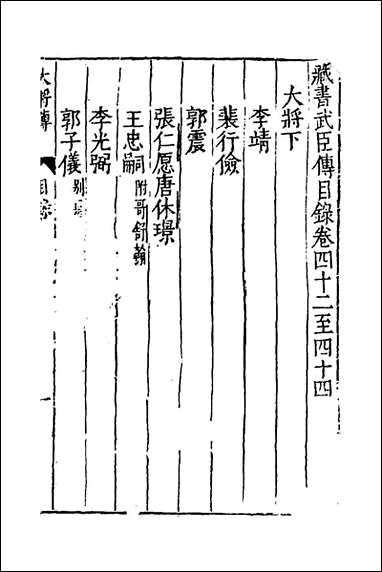 藏書武臣傳目錄卷四十二至四十四
大將下
李靖
裴行儉
郭震
張仁愿唐休璟
王忠嗣附哥舒翰
李光弼
郭子儀別見
大將傳 目錄 一